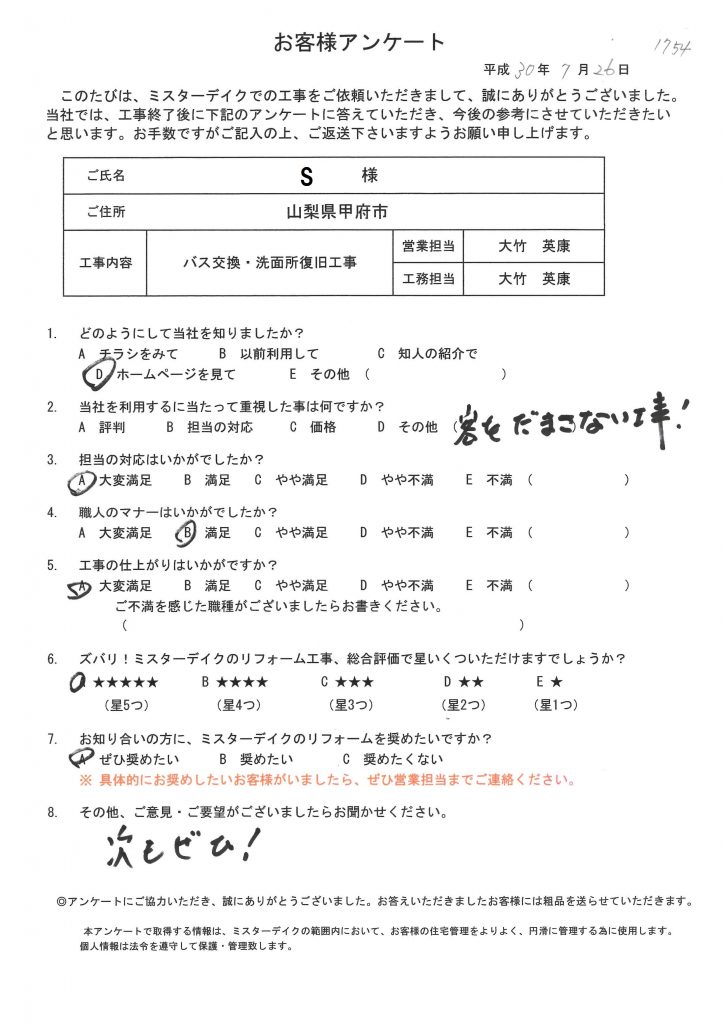 お客様アンケート
1754
平成 30 年 7 月 26 日
このたびは、ミスターデイクでの工事をご依頼いただきまして、誠にありがとうございました。
当社では、工事終了後に下記のアンケートに答えていただき、今後の参考にさせていただきたい
と思います。お手数ですがご記入の上、ご返送下さいますようお願い申し上げます。
ご氏名 S 様
ご住所 山梨県甲府市
工事内容 バス交換・洗面所復旧工事
営業担当 大竹 英康
工務担当 大竹 英康
1. どのようにして当社を知りましたか?
A チラシをみて B 以前利用して C 知人の紹介で
D ホームページを見て E その他 ( )
2. 当社を利用するに当たって重視した事は何ですか?
A 評判 B 担当の対応 C 価格 D その他 (客をだまさない工事!
3. 担当の対応はいかがでしたか?
A 大変満足 B 満足 C やや満足 D やや不満 E 不満 ( )
4. 職人のマナーはいかがでしたか?
A 大変満足 B 満足 C やや満足 D やや不満 E 不満 ( )
5. 工事の仕上がりはいかがですか?
A 大変満足 B 満足 C やや満足 D やや不満 E 不満 ( )
ご不満を感じた職種がございましたらお書きください。
( )
6. ズバリ!ミスターデイクのリフォーム工事、総合評価で星いくついただけますでしょうか?
A ★★★★★ B ★★★★ C ★★★ D ★★ E ★
(星5つ) (星4つ) (星3つ) (星2つ) (星1つ)
7. お知り合いの方に、ミスターデイクのリフォームを奨めたいですか?
A ぜひ奨めたい B 奨めたい C 奨めたくない
※ 具体的にお奨めしたいお客様がいましたら、ぜひ営業担当までご連絡ください。
8. その他、ご意見・ご要望がございましたらお聞かせください。
次もぜひ!
◎アンケートにご協力いただき、誠にありがとうございました。お答えいただきましたお客様には粗品を送らせていただきます。
本アンケートで取得する情報は、ミスターデイクの範囲内において、お客様の住宅管理をよりよく、円滑に管理する為に使用します。
個人情報は法令を遵守して保護・管理致します。